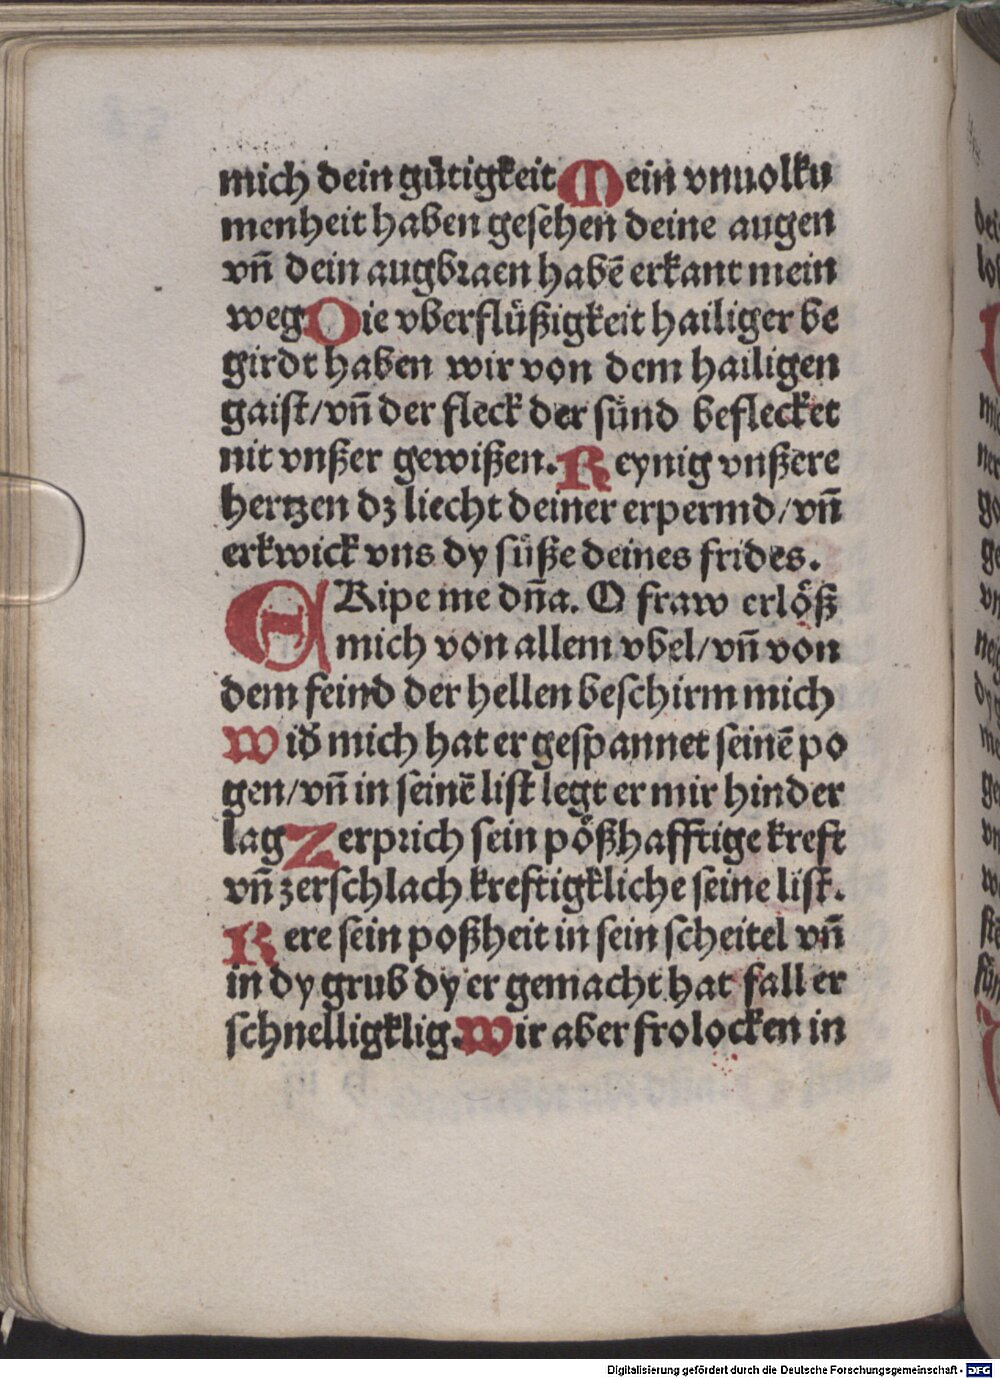 mich dein gütigkeit Mein vnuolku
menheit haben gesehen deine augen
vn̄ dein augbraen habē erkant mein
weg Die vberflüßigkeit hailiger be
girdt haben wir von dem hailigen
gaist/vn̄ der fleck der sünd beflecket
nit vnßer gewißen. Reynig vnßere
hertzen dz liecht deiner erpermd/vn̄
erkwick vns dy süße deines frides.
ERipe me dn̄a. O fraw erlöß
mich von allem vbel/vn̄ von
dem feind der hellen beschirm mich
Wid̄ mich hat er gespannet seinē po
gen/vn̄ in seinē list legt er mir hinder
lag Zerprich sein pößhafftige kreft
vn̄ zerschlach kreftigkliche seine list.
Kere sein poßheit in sein scheitel vn̄
in dy grub dy er gemacht hat fall er
schnelligklig. Wir aber frolocken in
Digitalisierung gefördert durch die Deutsche Forschungsgemeinschaft - DFG